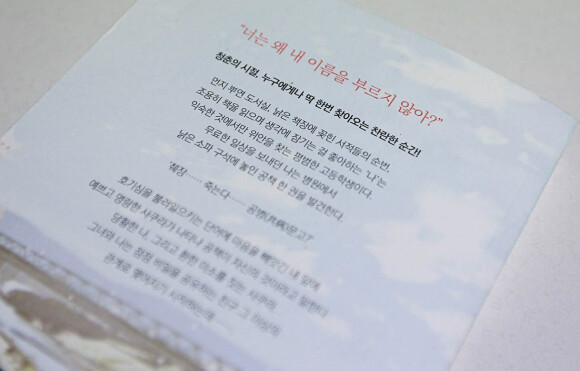 "너는 왜 내 이름을 부르지 않아?"
청춘의 시절, 누구에게나 딱 한번 찾아오는 찬란한 순간!
먼지 뿌연 도서실, 낡은 책장에 꽂힌 서적들의 순번.
조용히 책을 읽으며 생각에 잠기는 걸 좋아하는 '나'는
익숙한 것에서만 위안을 찾는 평범한 고등학생이다.
무료한 일상을 보내던 나는 병원에서
낡은 소파 구석에 놓인 공책 한 권을 발견한다.
'췌장…… 죽는다…… 공병(共病)문고?'
호기심을 불러일으키는 단어에 마음을 빼앗긴 내 앞에
예쁘고 명랑한 사쿠라가 나타나 공책이 자신의 것이라고 말한다.
당황한 나, 그리고 환한 미소를 짓는 사쿠라.
그녀와 나는 점점 비밀을 공유하는 친구 그 이상의
관계로 맺어지기 시작하는데